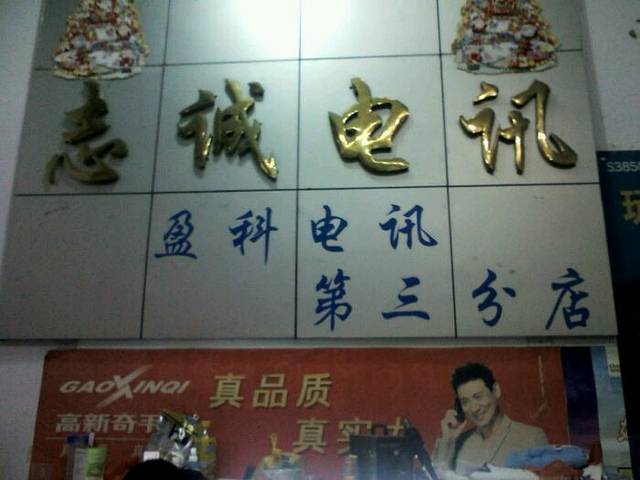 志诚电讯
盈科电讯
第三分店
S3850
GAOXINQI
真品质
高新奇手
真实